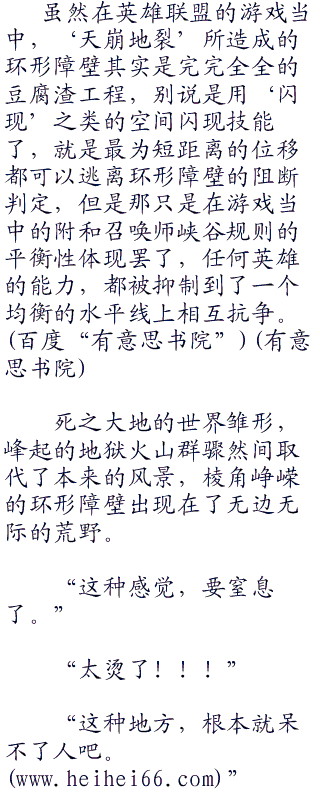 虽然在英雄联盟的游戏当
中，‘天崩地裂’所造成的
环形障壁其实是完完全全的
豆腐渣工程，别说是用‘闪
现’之类的空间闪现技能
了，就是最为短距离的位移
都可以逃离环形障壁的阻断
判定，但是那只是在游戏当
中的附和召唤师峡谷规则的
平衡性体现罢了，任何英雄
的能力，都被抑制到了一个
均衡的水平线上相互抗争。
(百度“有意思书院”)(有意
思书院)
死之大地的世界雏形，
峰起的地狱火山群骤然间取
代了本来的风景，棱角峥嵘
的环形障壁出现在了无边无
际的荒野。
“这种感觉，要窒息
了。”
“太烫了！！！”
“这种地方，根本就呆
不了人吧。
(www.heihei66.com)”